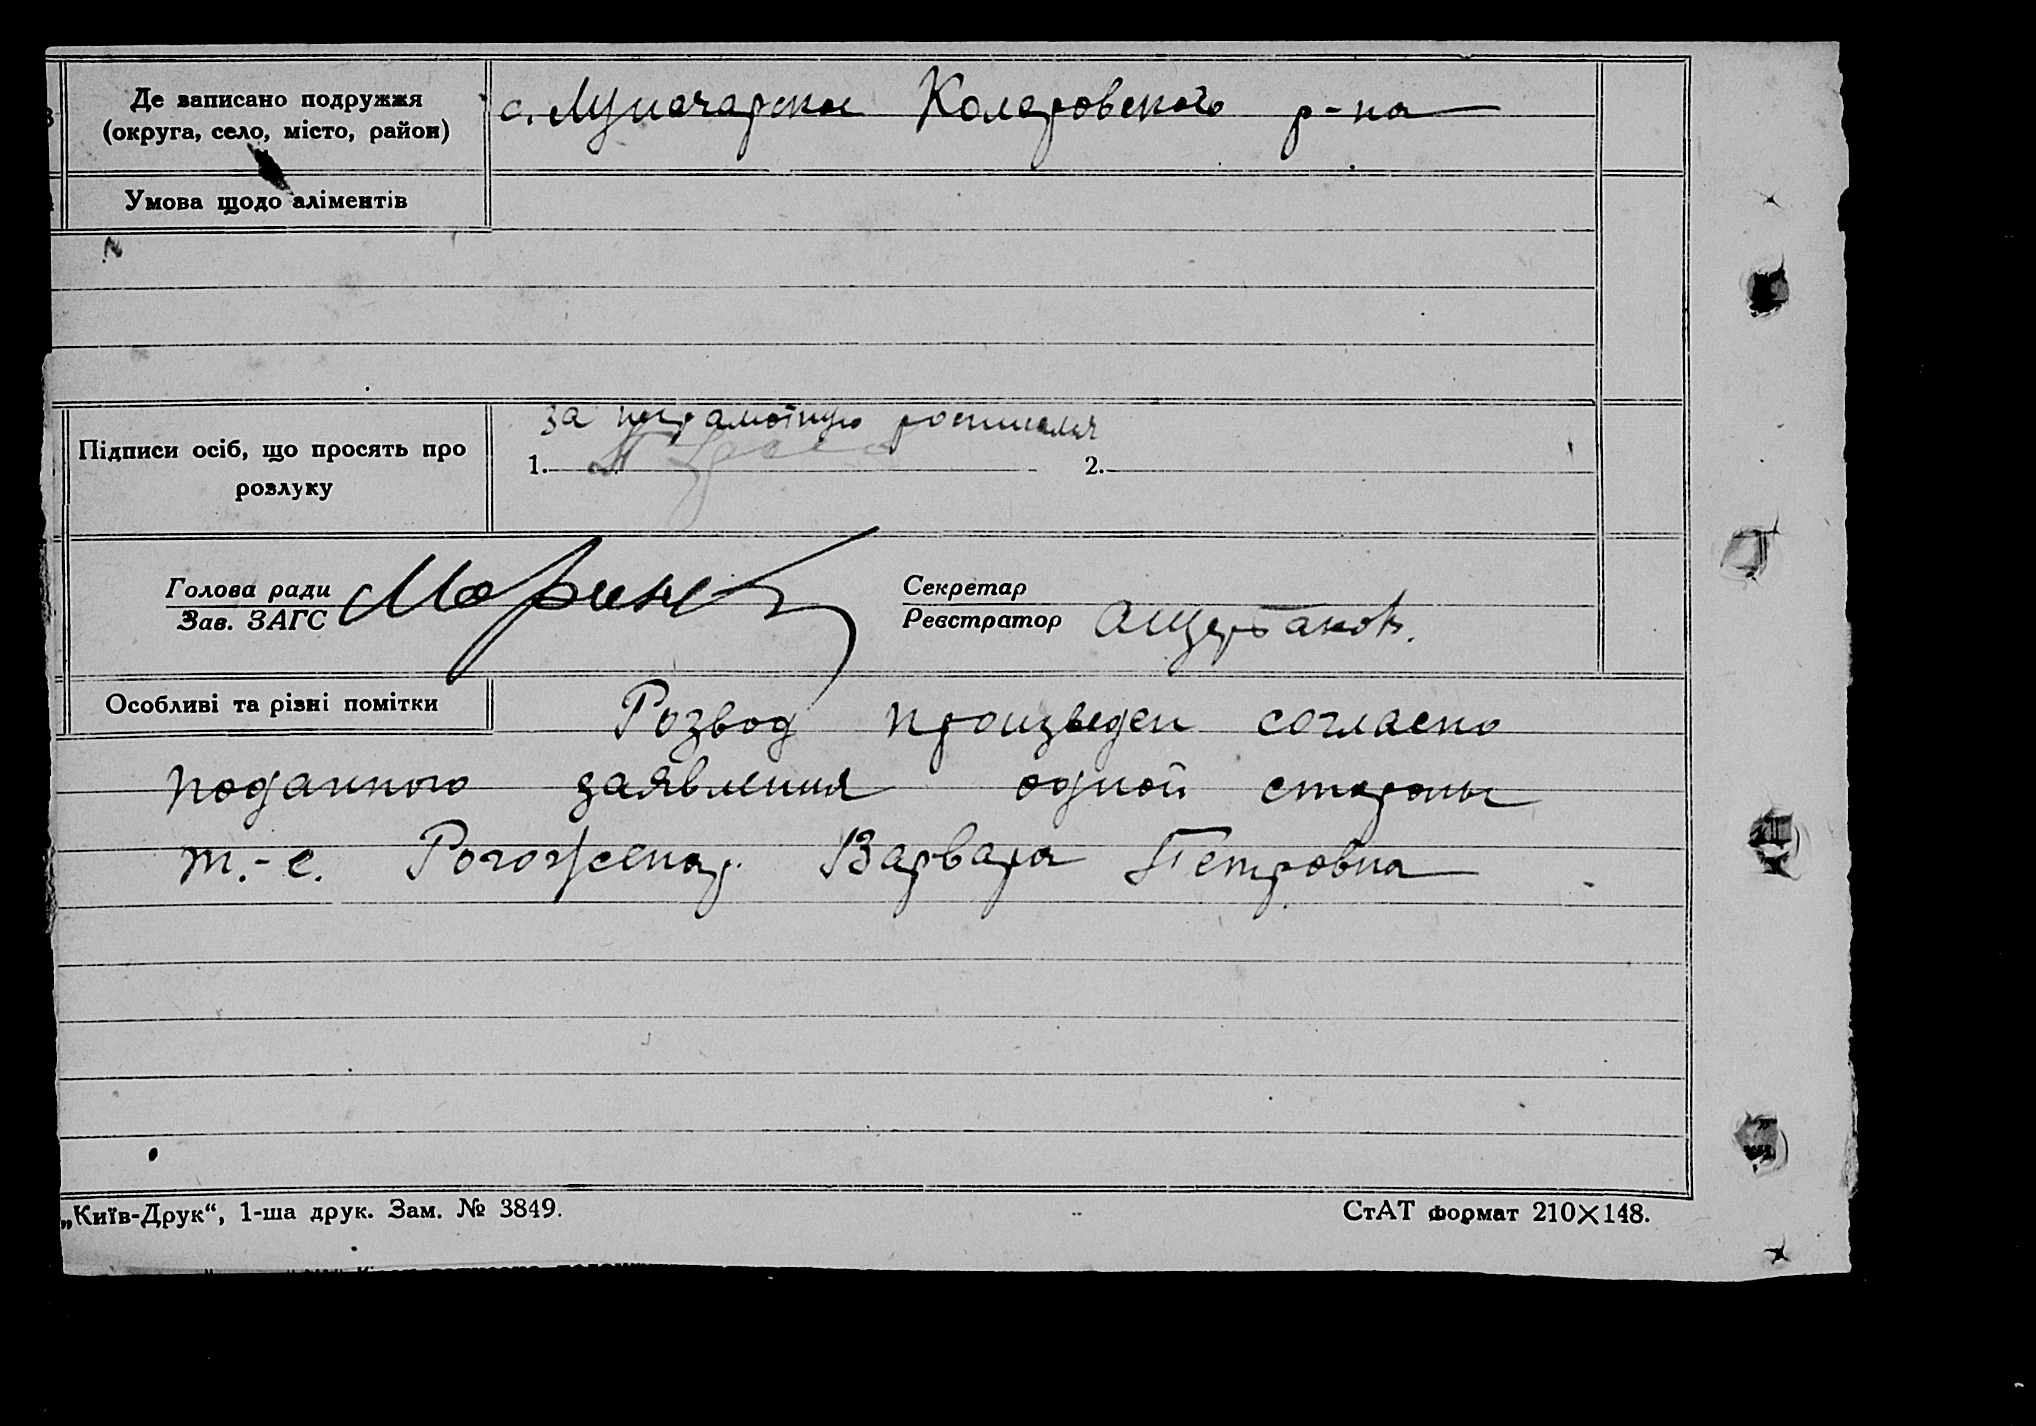 Де записано подружжя
(округа, село, місто, район)
с. Луначарска Коларовского р-на
Умова щодо аліментів
за неграмотную росписался
Підписи осіб, що просять про
розлуку
1. 2.
Голова ради
Зав. ЗАГС
Секретар
Реєстратор
Особливі та різні помітки
Розвод произведен согласно
поданного заявления одной стороны
т.-е. Варвара Петровна
„Київ-Друк“, 1-ша друк. Зам. № 3849.
СтАТ формат 210×148.